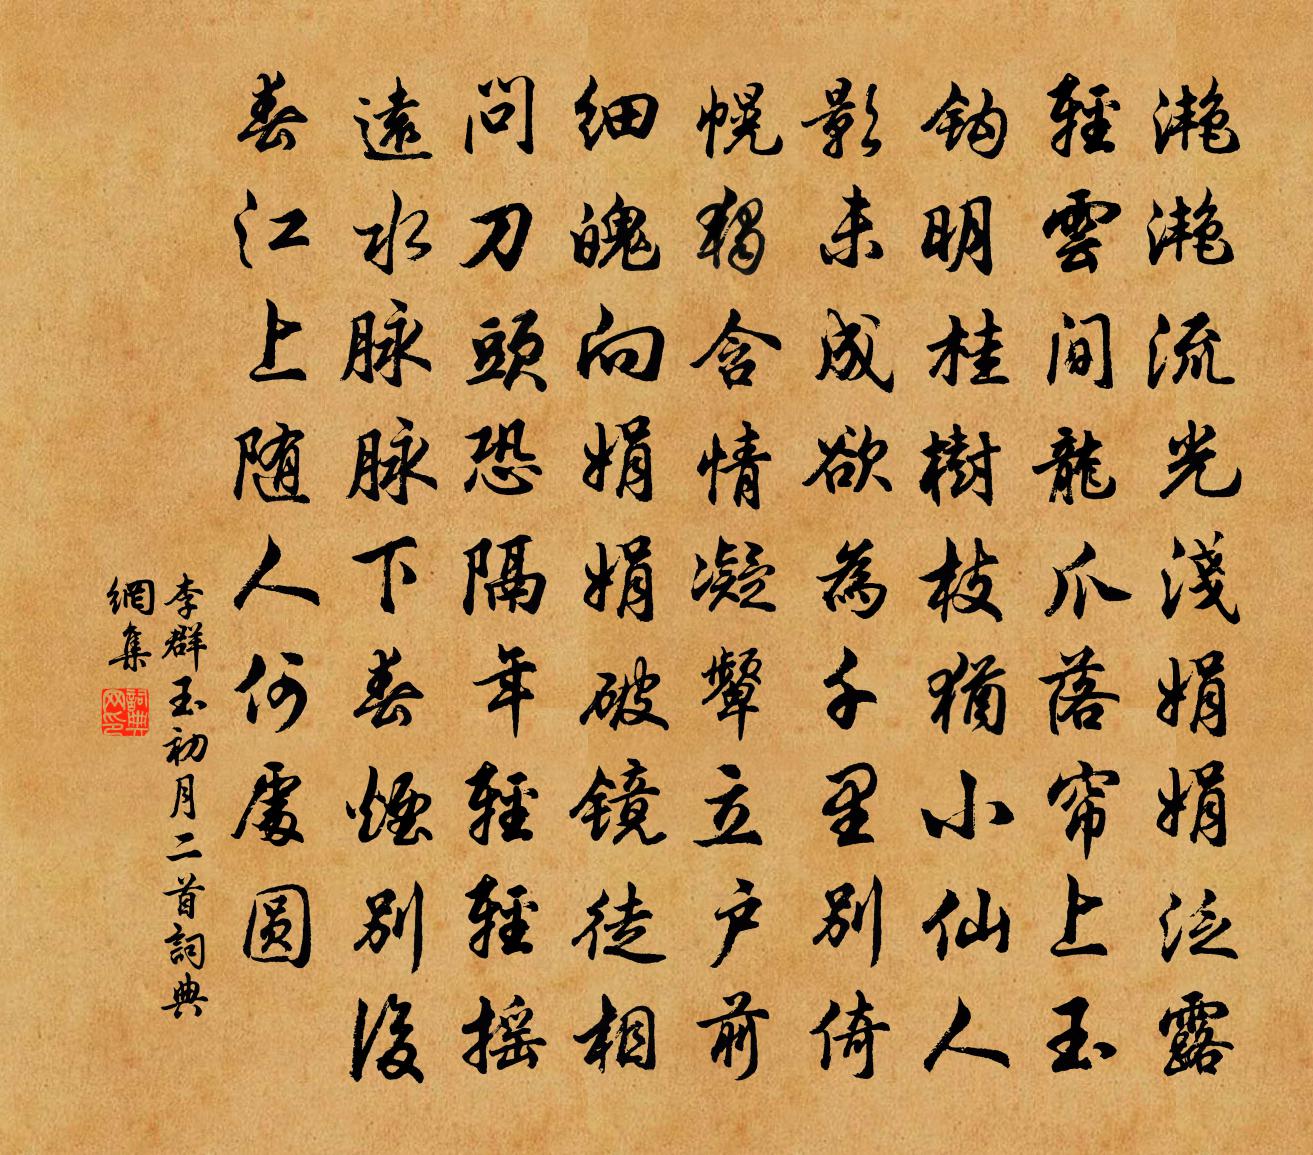 灔灔流光淺娟娟泛露
輕雲間龍爪落帘上玉
鈎明桂樹枝猶小仙人
影未成欲為千里別倚
幌獨含情凝顰立户前
細魄向娟娟破鏡徒相
問刀頭恐隔年輕輕摇
遠水脉脉下春煙別後
春江上随人何處圆
李群玉初月二首詞典
網集
詞典网印